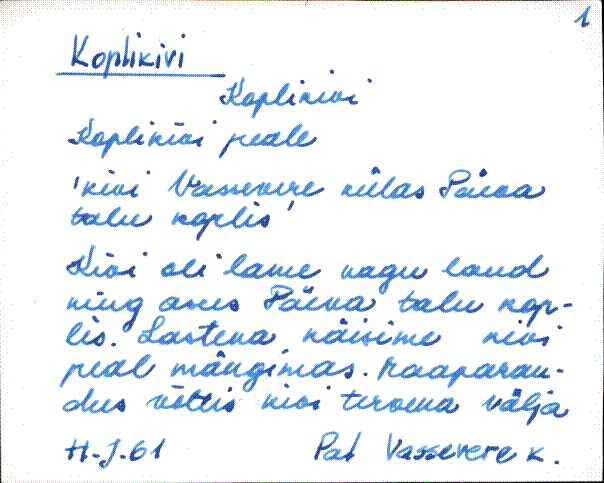 1
Koplikivi
Koplikivi
Koplikivi peale
'kivi Vassevere külas Päeva
talu koplis'
Kivi oli lame nagu laud
ning asus Päeva talu kop-
lis. Lastena käisime kivi
peal mängimas. Maaparan-
dus võttis kivi tervena välja
H-J. 61 Pat Vassevere k.